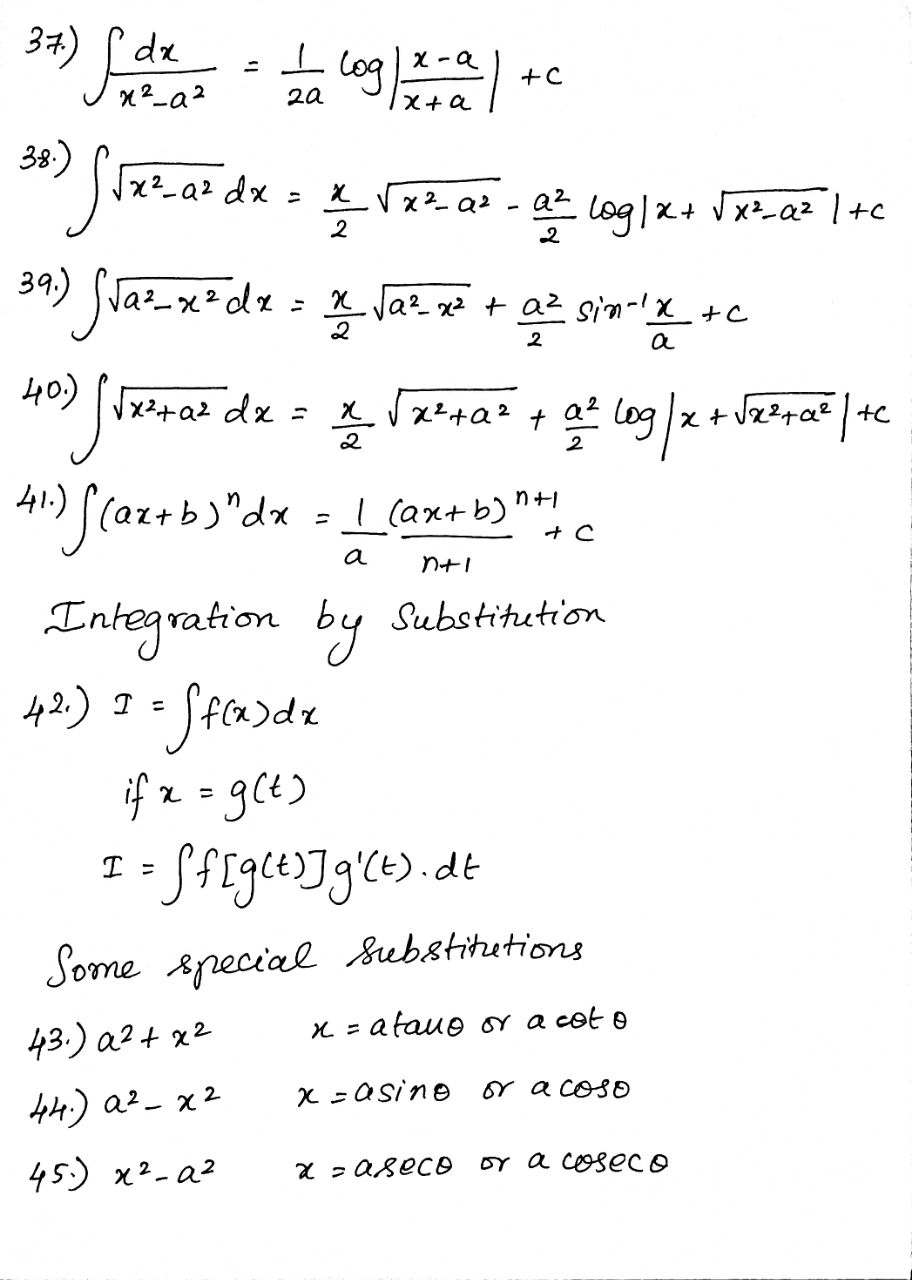 37.) ∫ dx/(x²-a²) = 1/2a log|(x-a)/(x+a)| +c
38.) ∫√(x²-a²) dx = x/2 √(x²-a²) - a²/2 log|x+√(x²-a²)|+c
39.) ∫√(a²-x²) dx = x/2 √(a²-x²) + a²/2 sin⁻¹ x/a +c
40.) ∫√(x²+a²) dx = x/2 √(x²+a²) + a²/2 log|x+√(x²+a²)|+c
41.) ∫(ax+b)ⁿdx = 1/a (ax+b)ⁿ⁺¹/(n+1) +c
Integration by Substitution
42.) I = ∫f(x)dx
if x = g(t)
I = ∫f[g(t)]g'(t).dt
Some special Substitutions
43.) a²+x² x = atanθ or a cotθ
44.) a²-x² x = asinθ or a cosθ
45.) x²-a² x = asecθ or a cosecθ